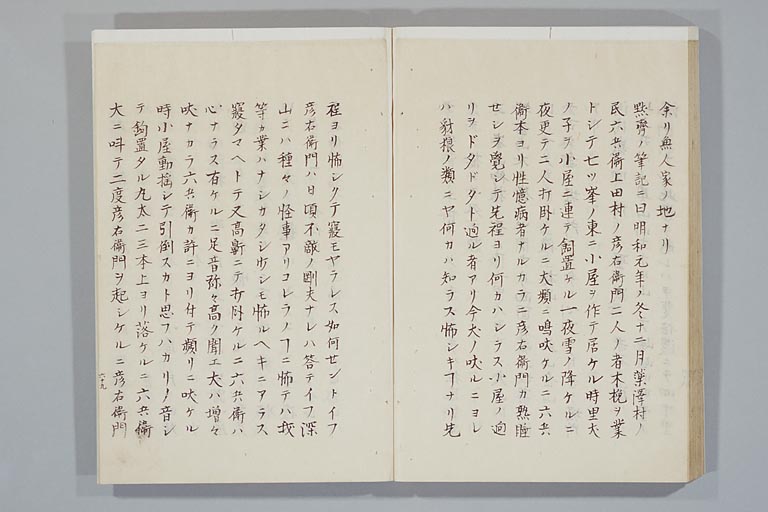 余リ無人家ノ地ナリ
黙齋ノ筆記ニ曰明和元年ノ冬十二月葉澤村ノ
民六兵衞上田村ノ彦右衞門二人ノ者木挽ヲ業
トシテ七ツ峯ノ東ニ小屋ヲ作テ居ケル時里犬
ノ子ヲ小屋ニ連テ飼置ケル一夜雪ノ降ケルニ
夜更テ二人打臥ケルニ犬頻ニ鳴吠ケルニ六兵
衞本ヨリ性憶病者ナルカラニ彦右衞門カ熟睡
セシヲ覺シテ先程ヨリ何カハシラス小屋ノ廻
リヲドタドタト過ル者アリ今犬ノ吠ルニヨレ
ハ豺狼ノ類ニヤ何カハ知ラス怖シキヿナリ先
程ヨリ怖シクテ寢モヤラレス如何セントイフ
彦右衞門ハ日頃不敵ノ剛夫ナレハ答テイフ深
山ニハ種々ノ怪事アリコレラノヿニ怖テハ我
等カ業ハナシカタシ少シモ怖ルヘキニアラス
寢タマヘトテ又高鼾ニテ打臥ケルニ六兵衞ハ
心ナラス有ケルニ足音弥々高ク聞エ犬ハ増々
吠ナカラ六兵衞カ許ニヨリ付テ頻リニ吠ケル
時小屋動搖シテ引倒スカト思フハカリノ音シ
テ飼置タル丸太二三本上ヨリ落ケルニ六兵衞
大ニ呌テ二度彦右衞門ヲ起シケルニ彦右衞門
六九